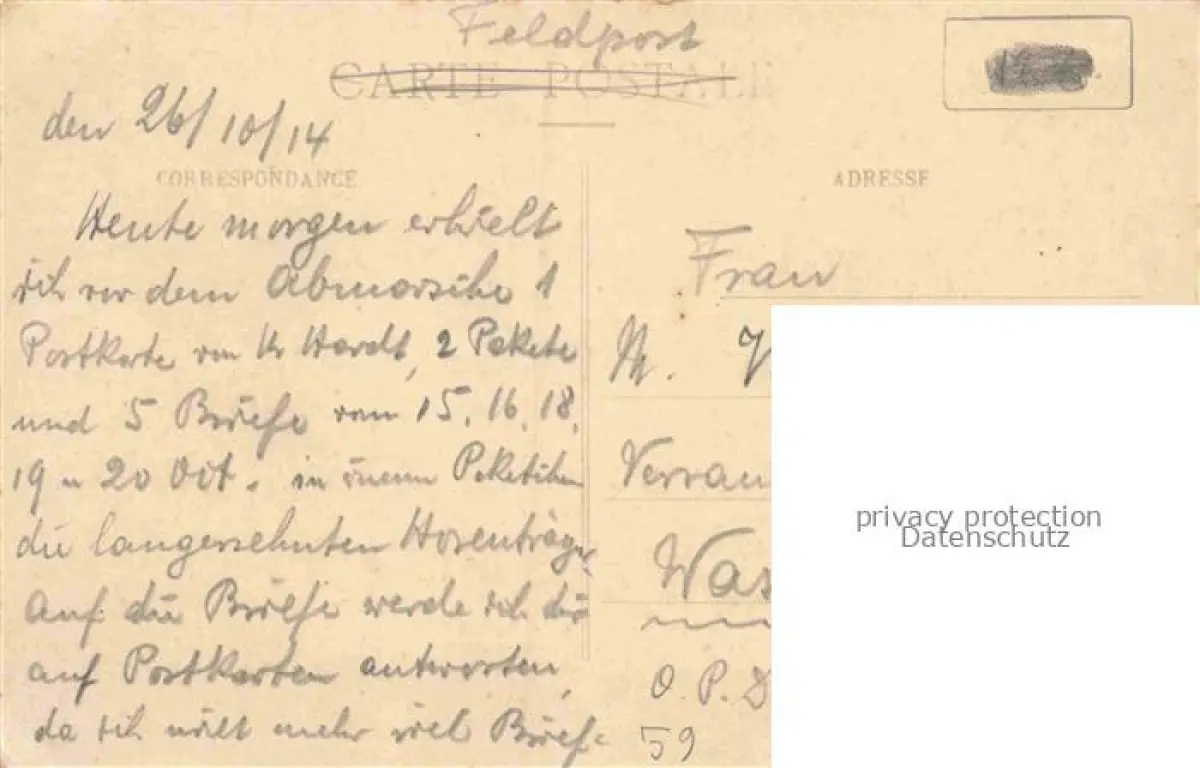 Feldpost
CARTE POSTALE
den 26/10/14
CORRESPONDANCE
Heute morgen erhielt
ich vor dem Abmarsche 1
Postkarte von Hardt, 2 Pakete
und 5 Briefe vom 15. 16. 18.
19 u 20 Oct. in einem Paketchen
die langersehnten Hosenträger.
Auf die Briefe werde ich dir
auf Postkarten antworten,
da ich nicht mehr viel Brief-
ADRESSE
Frau
M.
Was
O. P. D
59
privacy protection
Datenschutz